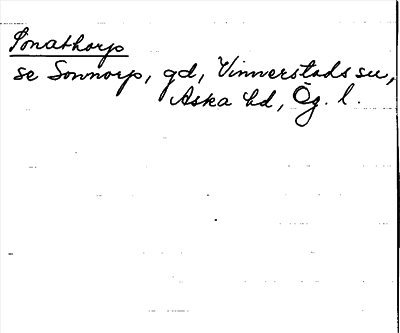 Sonathorp
se Sonnorp, gd, Vinnerstads sn,
Aska hd, Ög. l.